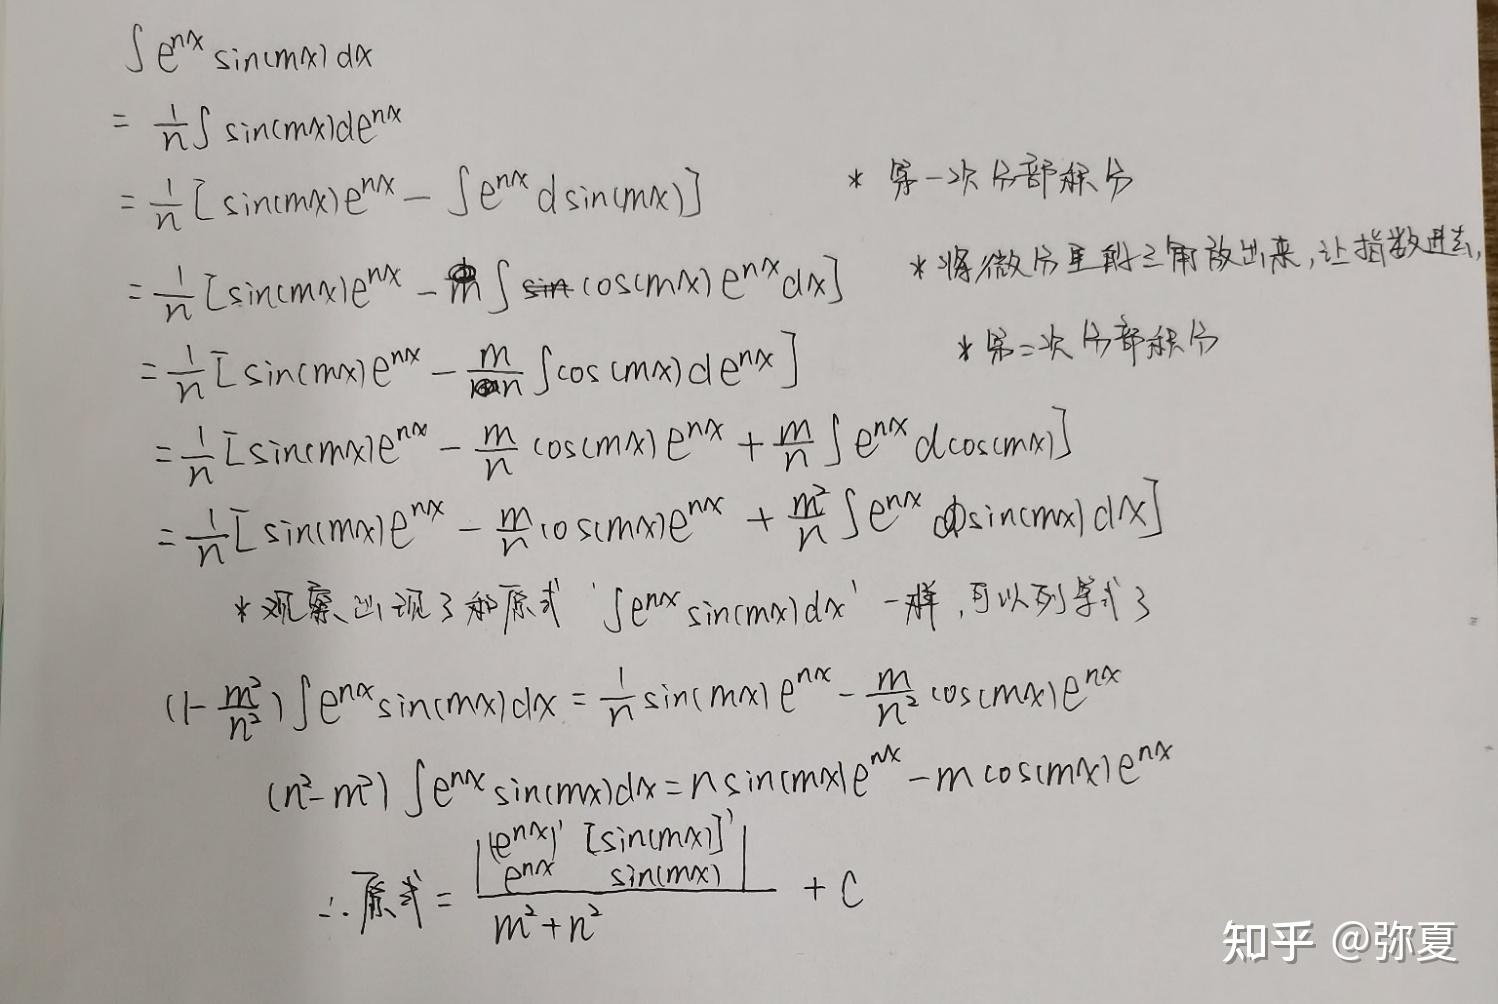 ∫ e^{nx} sin(mx) dx
= 1/n ∫ sin(mx) de^{nx}
= 1/n [ sin(mx) e^{nx} - ∫ e^{nx} d sin(mx) ] * 第一次分部积分
= 1/n [ sin(mx) e^{nx} - m ∫ cos(mx) e^{nx} dx ] * 将微分里的三角放出来,让指数进去,
= 1/n [ sin(mx) e^{nx} - m/n ∫ cos(mx) d e^{nx} ] * 第二次分部积分
= 1/n [ sin(mx) e^{nx} - m/n cos(mx) e^{nx} + m/n ∫ e^{nx} d cos(mx) ]
= 1/n [ sin(mx) e^{nx} - m/n cos(mx) e^{nx} + m²/n ∫ e^{nx} sin(mx) dx ]
* 观察出现了和原式 '∫ e^{nx} sin(mx) dx' 一样,可以列等式了
(1 - m²/n²) ∫ e^{nx} sin(mx) dx = 1/n sin(mx) e^{nx} - m/n² cos(mx) e^{nx}
(n² - m²) ∫ e^{nx} sin(mx) dx = n sin(mx) e^{nx} - m cos(mx) e^{nx}
∴ 原式 = | (e^{nx})' [sin(mx)]' ; e^{nx} sin(mx) | / (m² + n²) + C
知乎 @弥夏